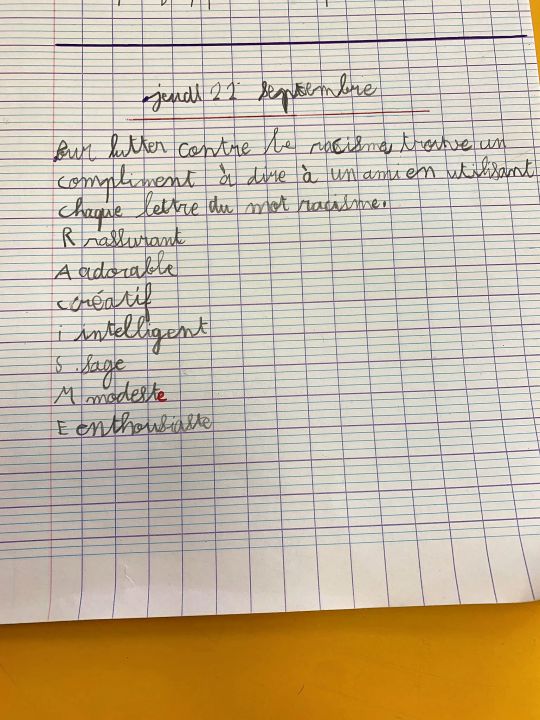 jeudi 22 septembre
Pour lutter contre le racisme trouve un
compliment à dire à un ami en utilisant
chaque lettre du mot racisme.
R rassurant
A adorable
C créatif
i intelligent
S sage
M modeste
E enthousiaste